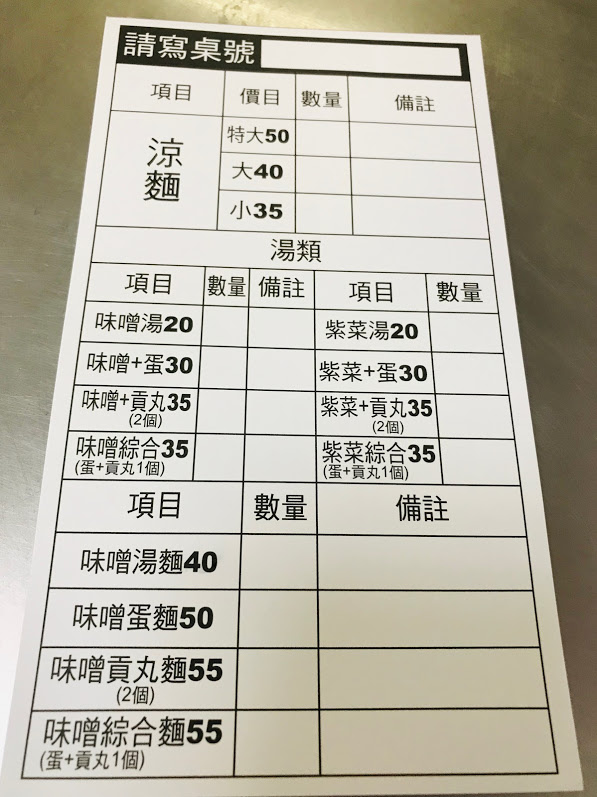 請寫桌號
項目 價目 數量 備註
涼麵
特大50
大40
小35
湯類
項目 數量 備註 項目 數量
味噌湯20 紫菜湯20
味噌+蛋30 紫菜+蛋30
味噌+貢丸35 紫菜+貢丸35
(2個) (2個)
味噌綜合35 紫菜綜合35
(蛋+貢丸1個) (蛋+貢丸1個)
項目 數量 備註
味噌湯麵40
味噌蛋麵50
味噌貢丸麵55
(2個)
味噌綜合麵55
(蛋+貢丸1個)